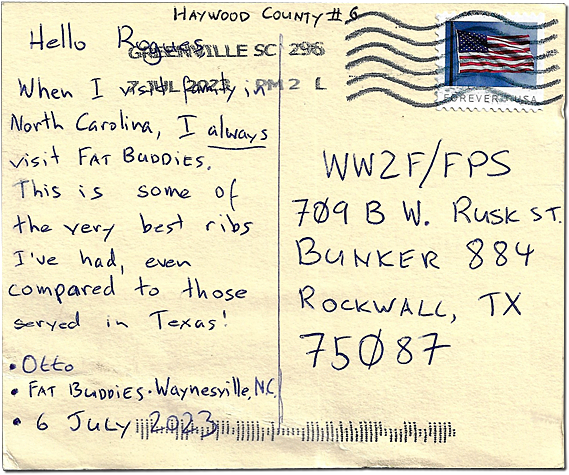 HAYWOOD COUNTY #6
Hello Rogues
GREENVILLE SC 296
7 JUL 2023 PM 2 L
When I visit family in
North Carolina, I always
visit FAT BUDDIES.
This is some of
the very best ribs
I've had, even
compared to those
served in Texas!
• Otto
• FAT BUDDIES • Waynesville, N.C.
• 6 JULY 2023
FOREVER USA
WW2F/FPS
709 B W. RUSK ST.
BUNKER 884
ROCKWALL, TX
75087